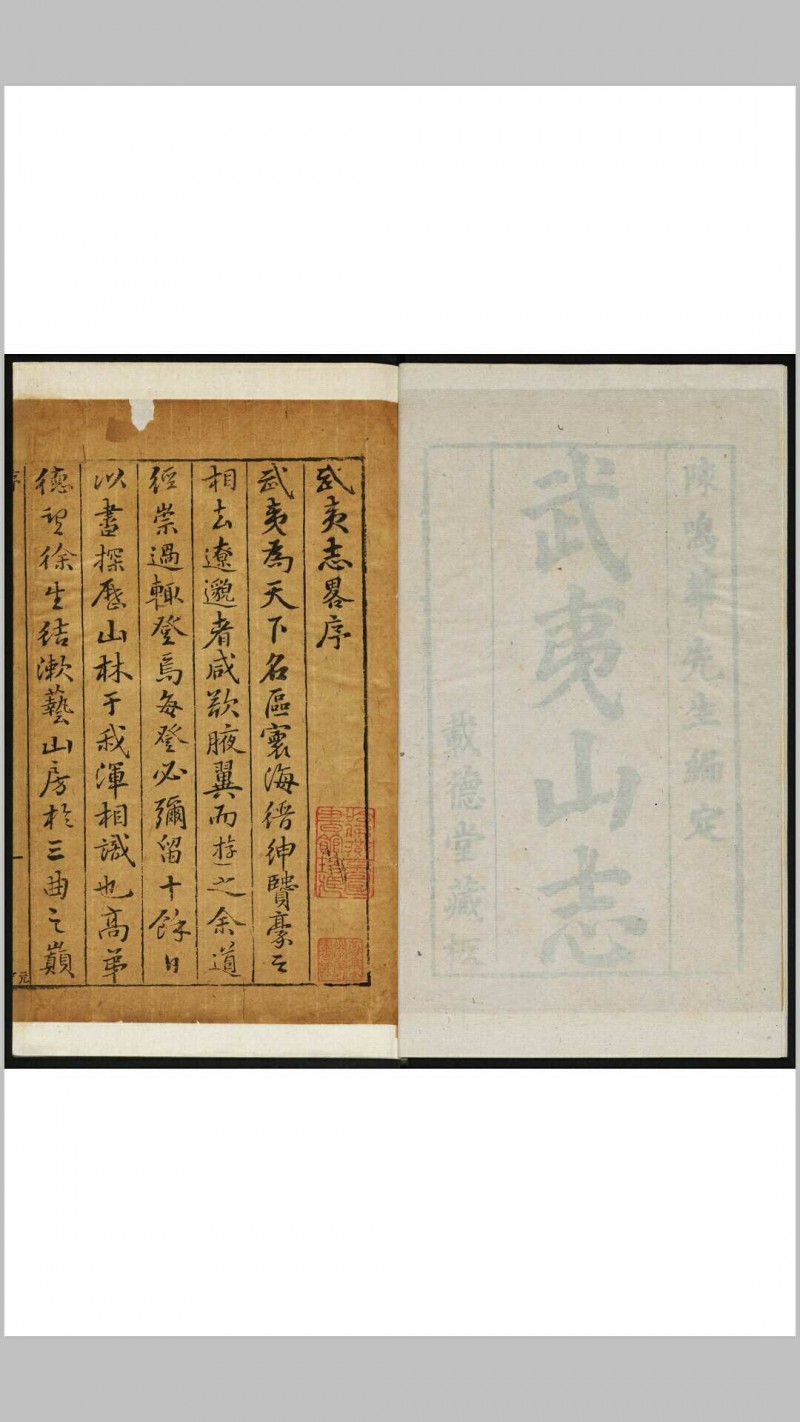 陳鳴華先生編定
武夷山志
載德堂藏板
武夷志畧序
武夷為天下名區寰海縉紳豪
相去遼邈者咸欲腋翼而游之余道
經崇過輒登焉每登必彌留十餘日
以書探歷山林于我渾相識也高弟
德望徐生結漱藝山房於三曲之巔
序
一
元